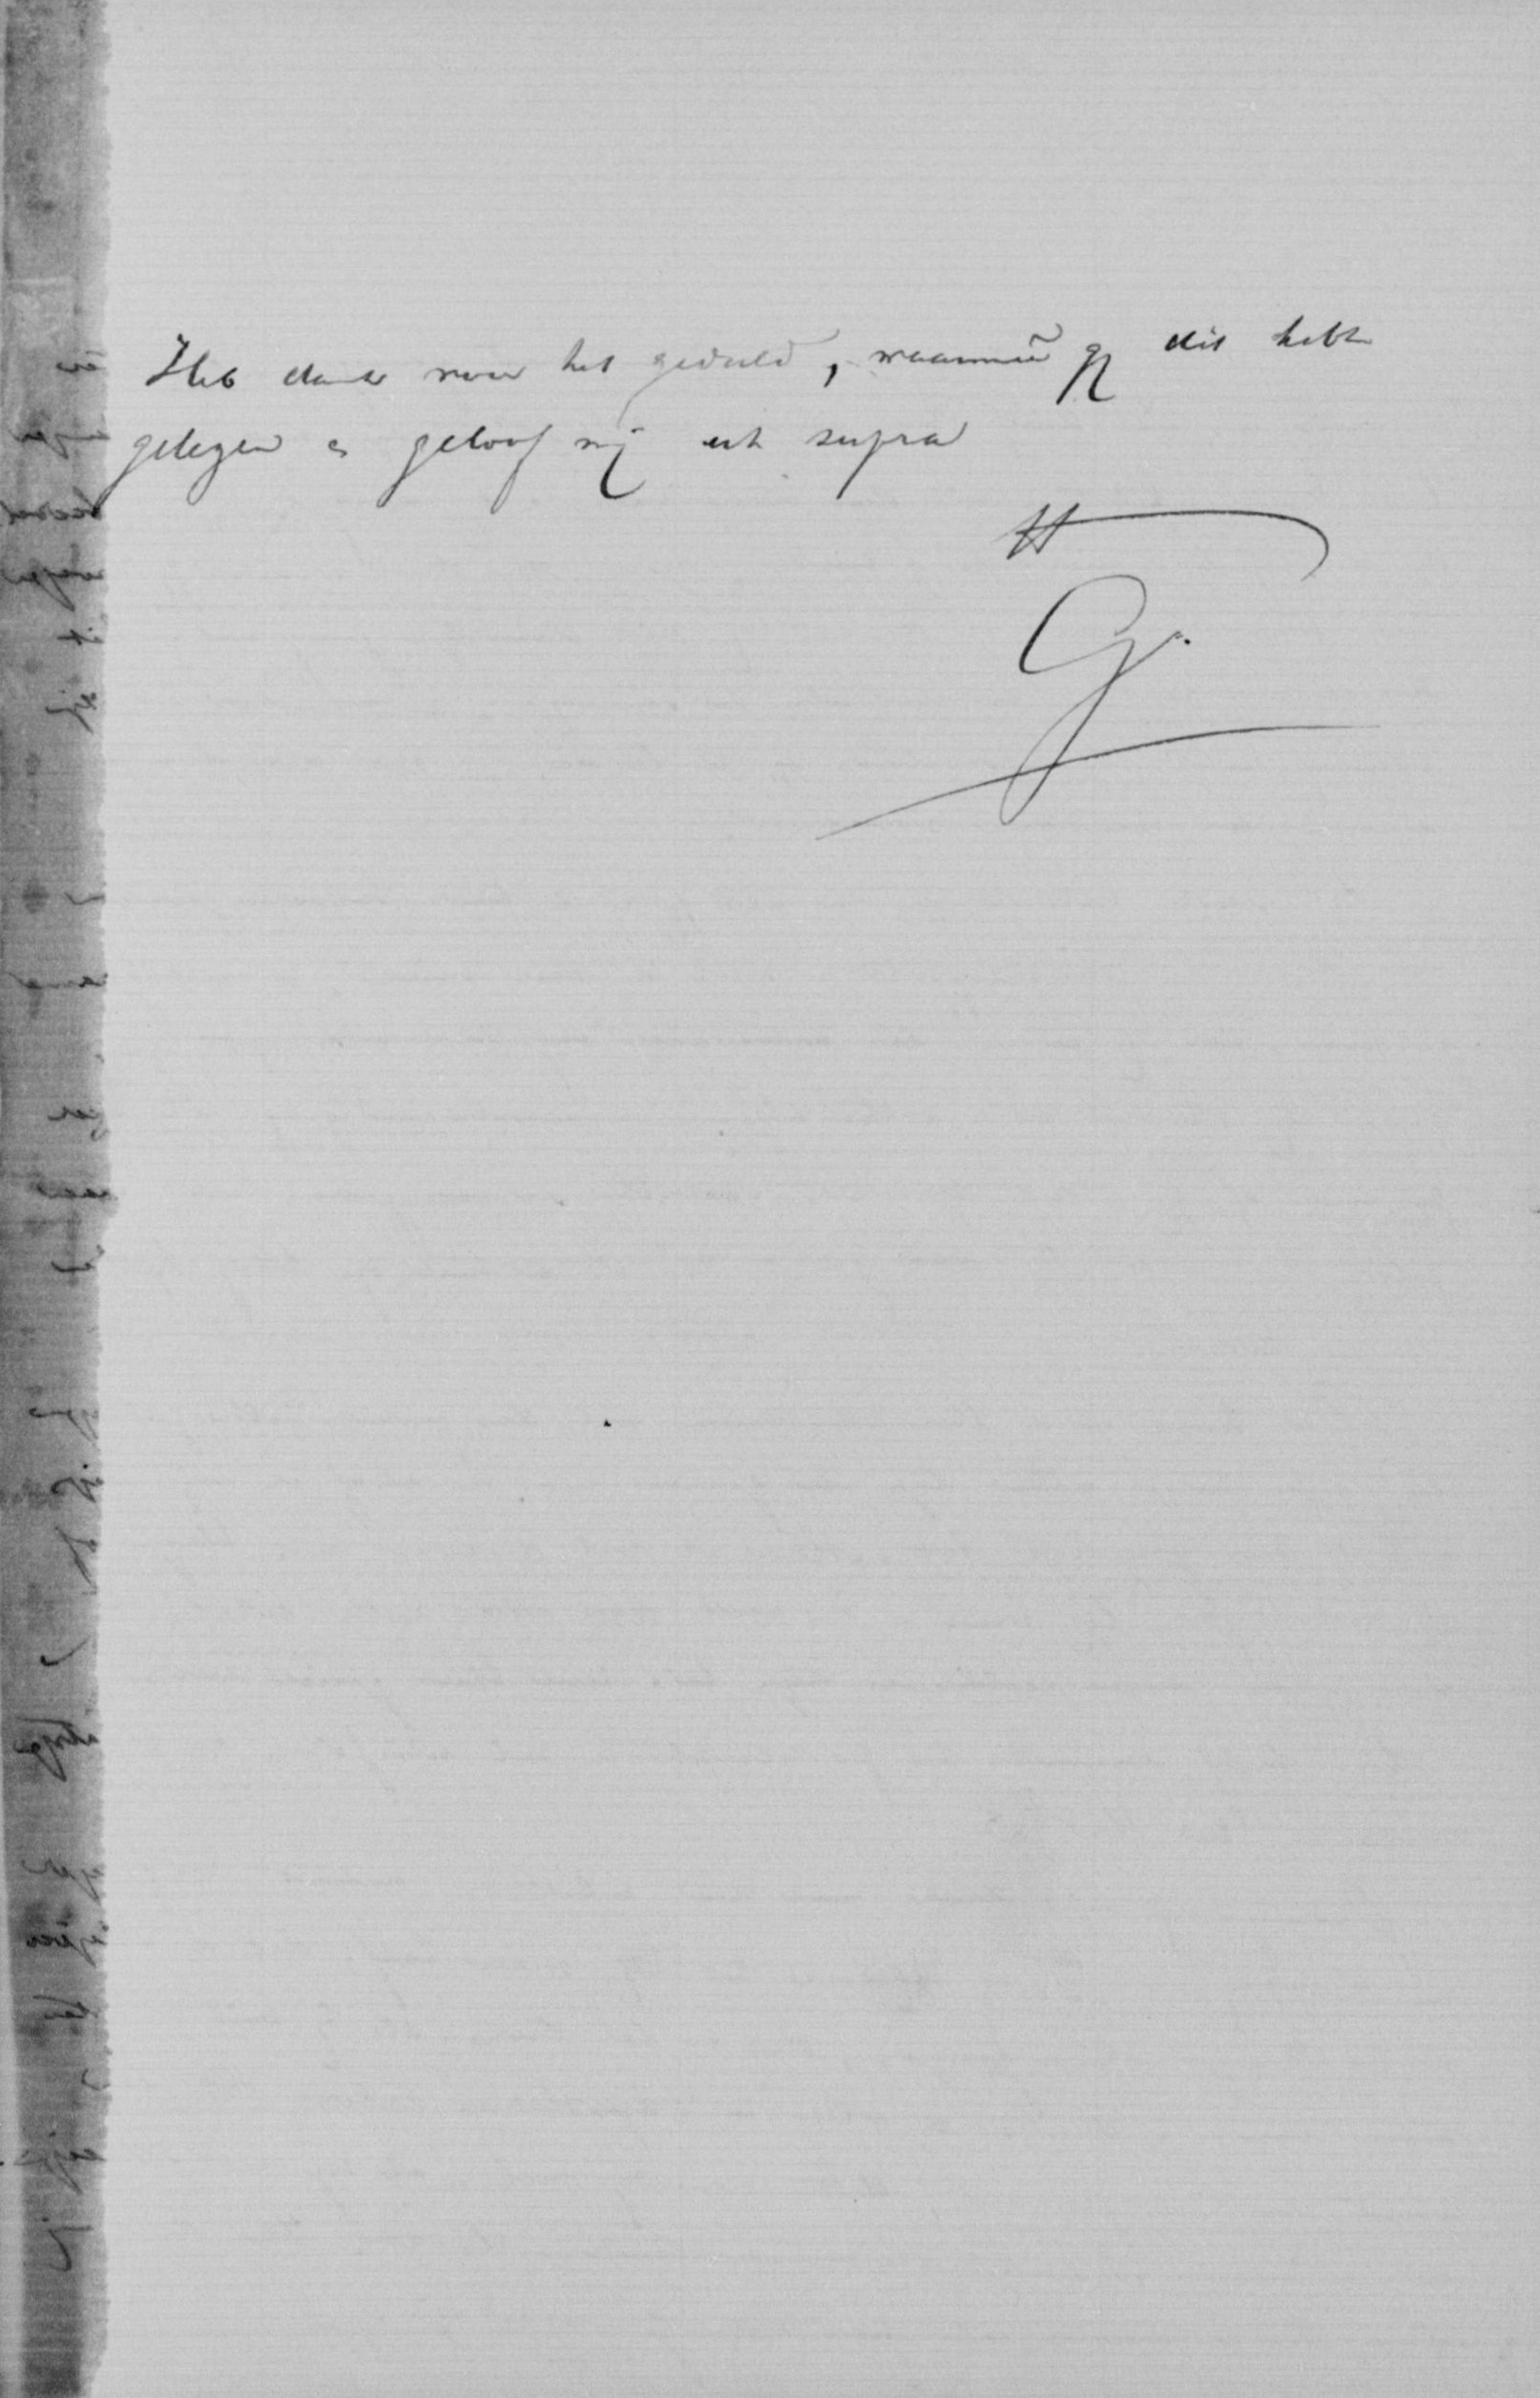 Heb dank voor het geduld, waarmeê gij dit hebt
gelezen en geloof mij ut supra
tt
G.